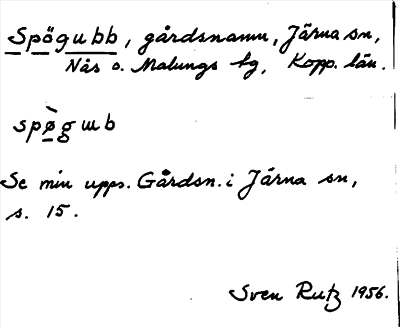 Spögubb, gårdsnamn, Järna sn,
Nås o. Malungs tg, Kopp. län.
spø̀gɯb
Se min upps. Gårdsn. i Järna sn,
s. 15.
Sven Rutz 1956.